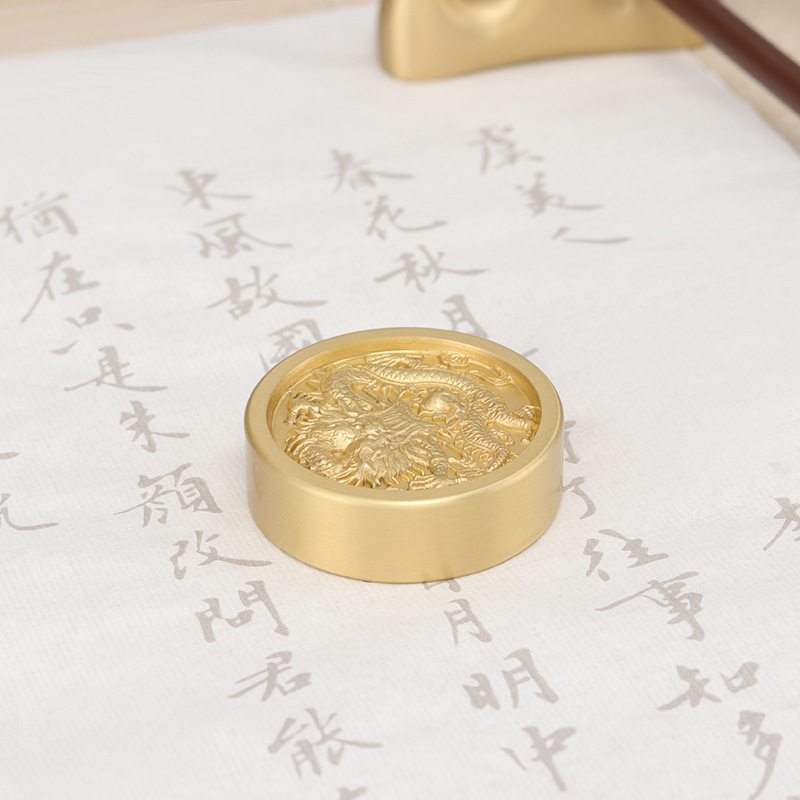 虞美人
春花秋月了往事知多
東風故國月明中
猶在只是朱顏改問君能